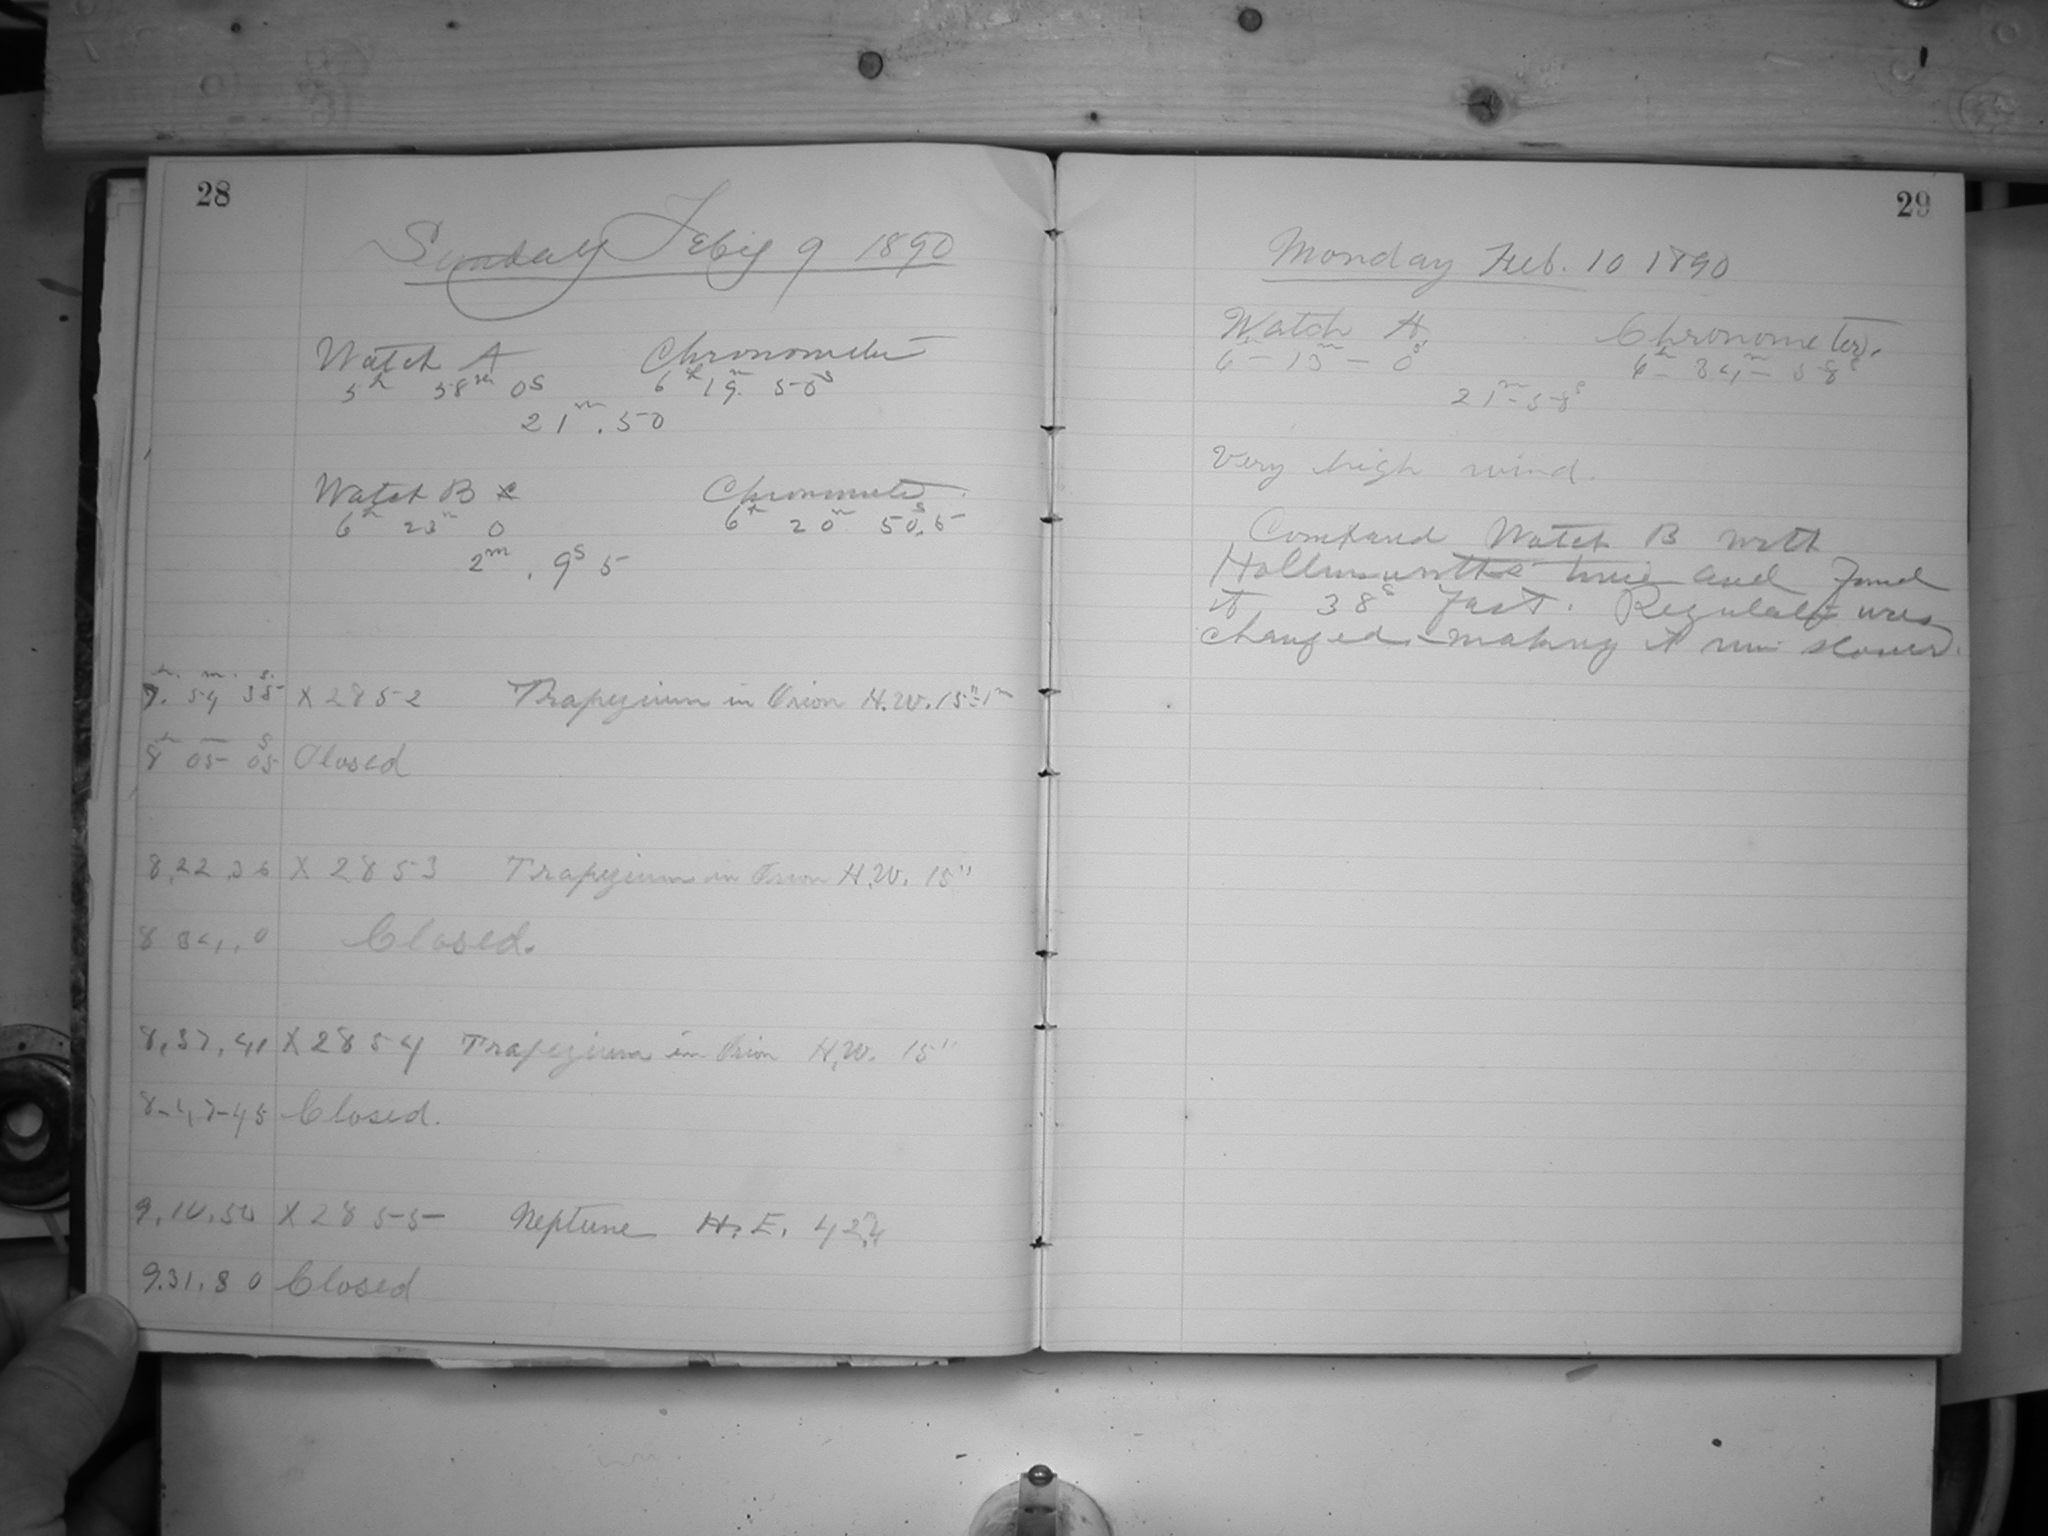 28
Sunday Feby 9 1890
Watch A Chronometer
5h 58m 0s 6h 19m 50s
21m.50
Watch B Chronometer
6h 23m 0 6h 20m 50.5s
2m. 9s 5
h. m. s.
7. 54 35 X 2852 Trapezium in Orion H.W. 15m-1m
8h 05 05s Closed
8,22,36 X 2853 Trapezium in Orion H.W. 15"
8 34, 0 Closed.
8,37,41 X 2854 Trapezium in Orion H.W. 15"
8-47-45 Closed.
9,10,50 X 2855 Neptune H.E. 42
9.31.30 Closed
29
Monday Feb. 10 1890
Watch A. Chronometer.
6h - 13m - 0s 6h - 34m - 58s
21m - 58s
Very high wind.
Compared Watch B with
Hollinsworths time and found
it 38s fast. Regulator was
changed making it run slower.